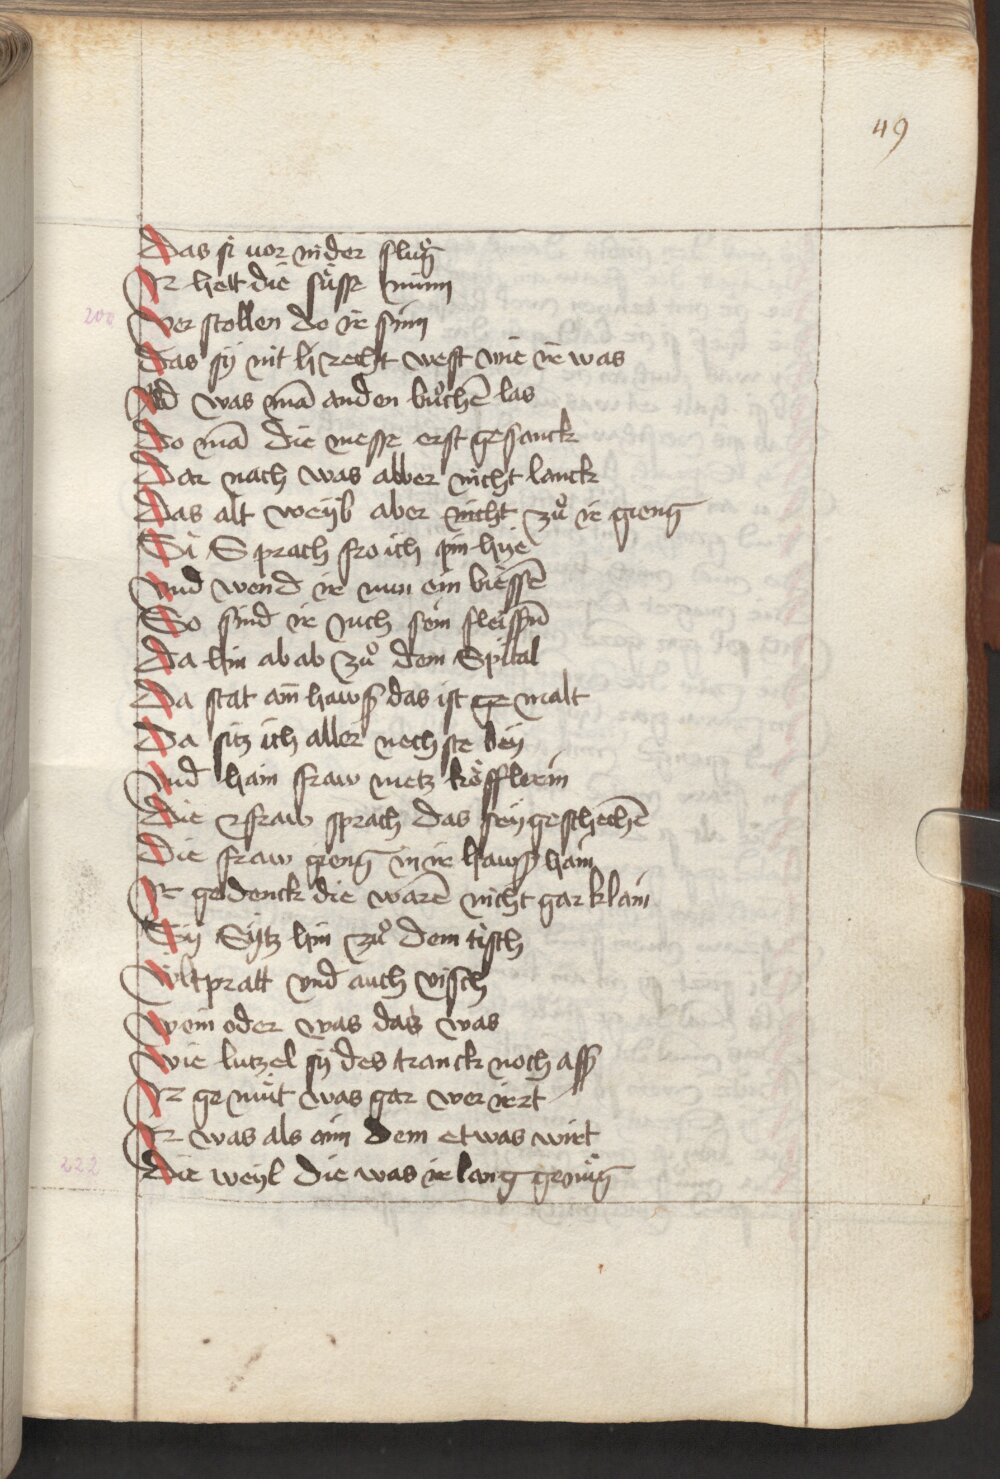 49
Das si vor nider slůg
Ir hett die süsse minn
200 Ver stollen do ir sinn
Das sÿ nit recht west wie ir was
was mā an den bůchē las
Do mā die messe erst gesanck
Dar nach was aber nicht lanck
Das alt weÿb aber nicht zů ir gieng
Si Sprach fro ich pin hÿe
Vnd wend ir nun ein biessē
So sind ir uch sein fleissñ
Da hin ab ab zů dem Spital
Da stat am̄ hawß das ist ge malt
Da sitz ich aller nechste beÿ
Vnd hain fraw metz köfflerin
Die fraw sprach das seÿ geschechē
Die fraw gieng in ir hawß hain
Ir gedenck die warē nicht gar klain
Sÿ Sÿtz hin zů dem tisch
Wiltpratt vnd auch visch
Wein oder was das was
Wie lutzel sÿ des tranck noch aß
Ir gemüt was gar ver irrt
Ir was als aim dem etwas wirt
222 Die weÿl die was ir lang genůg